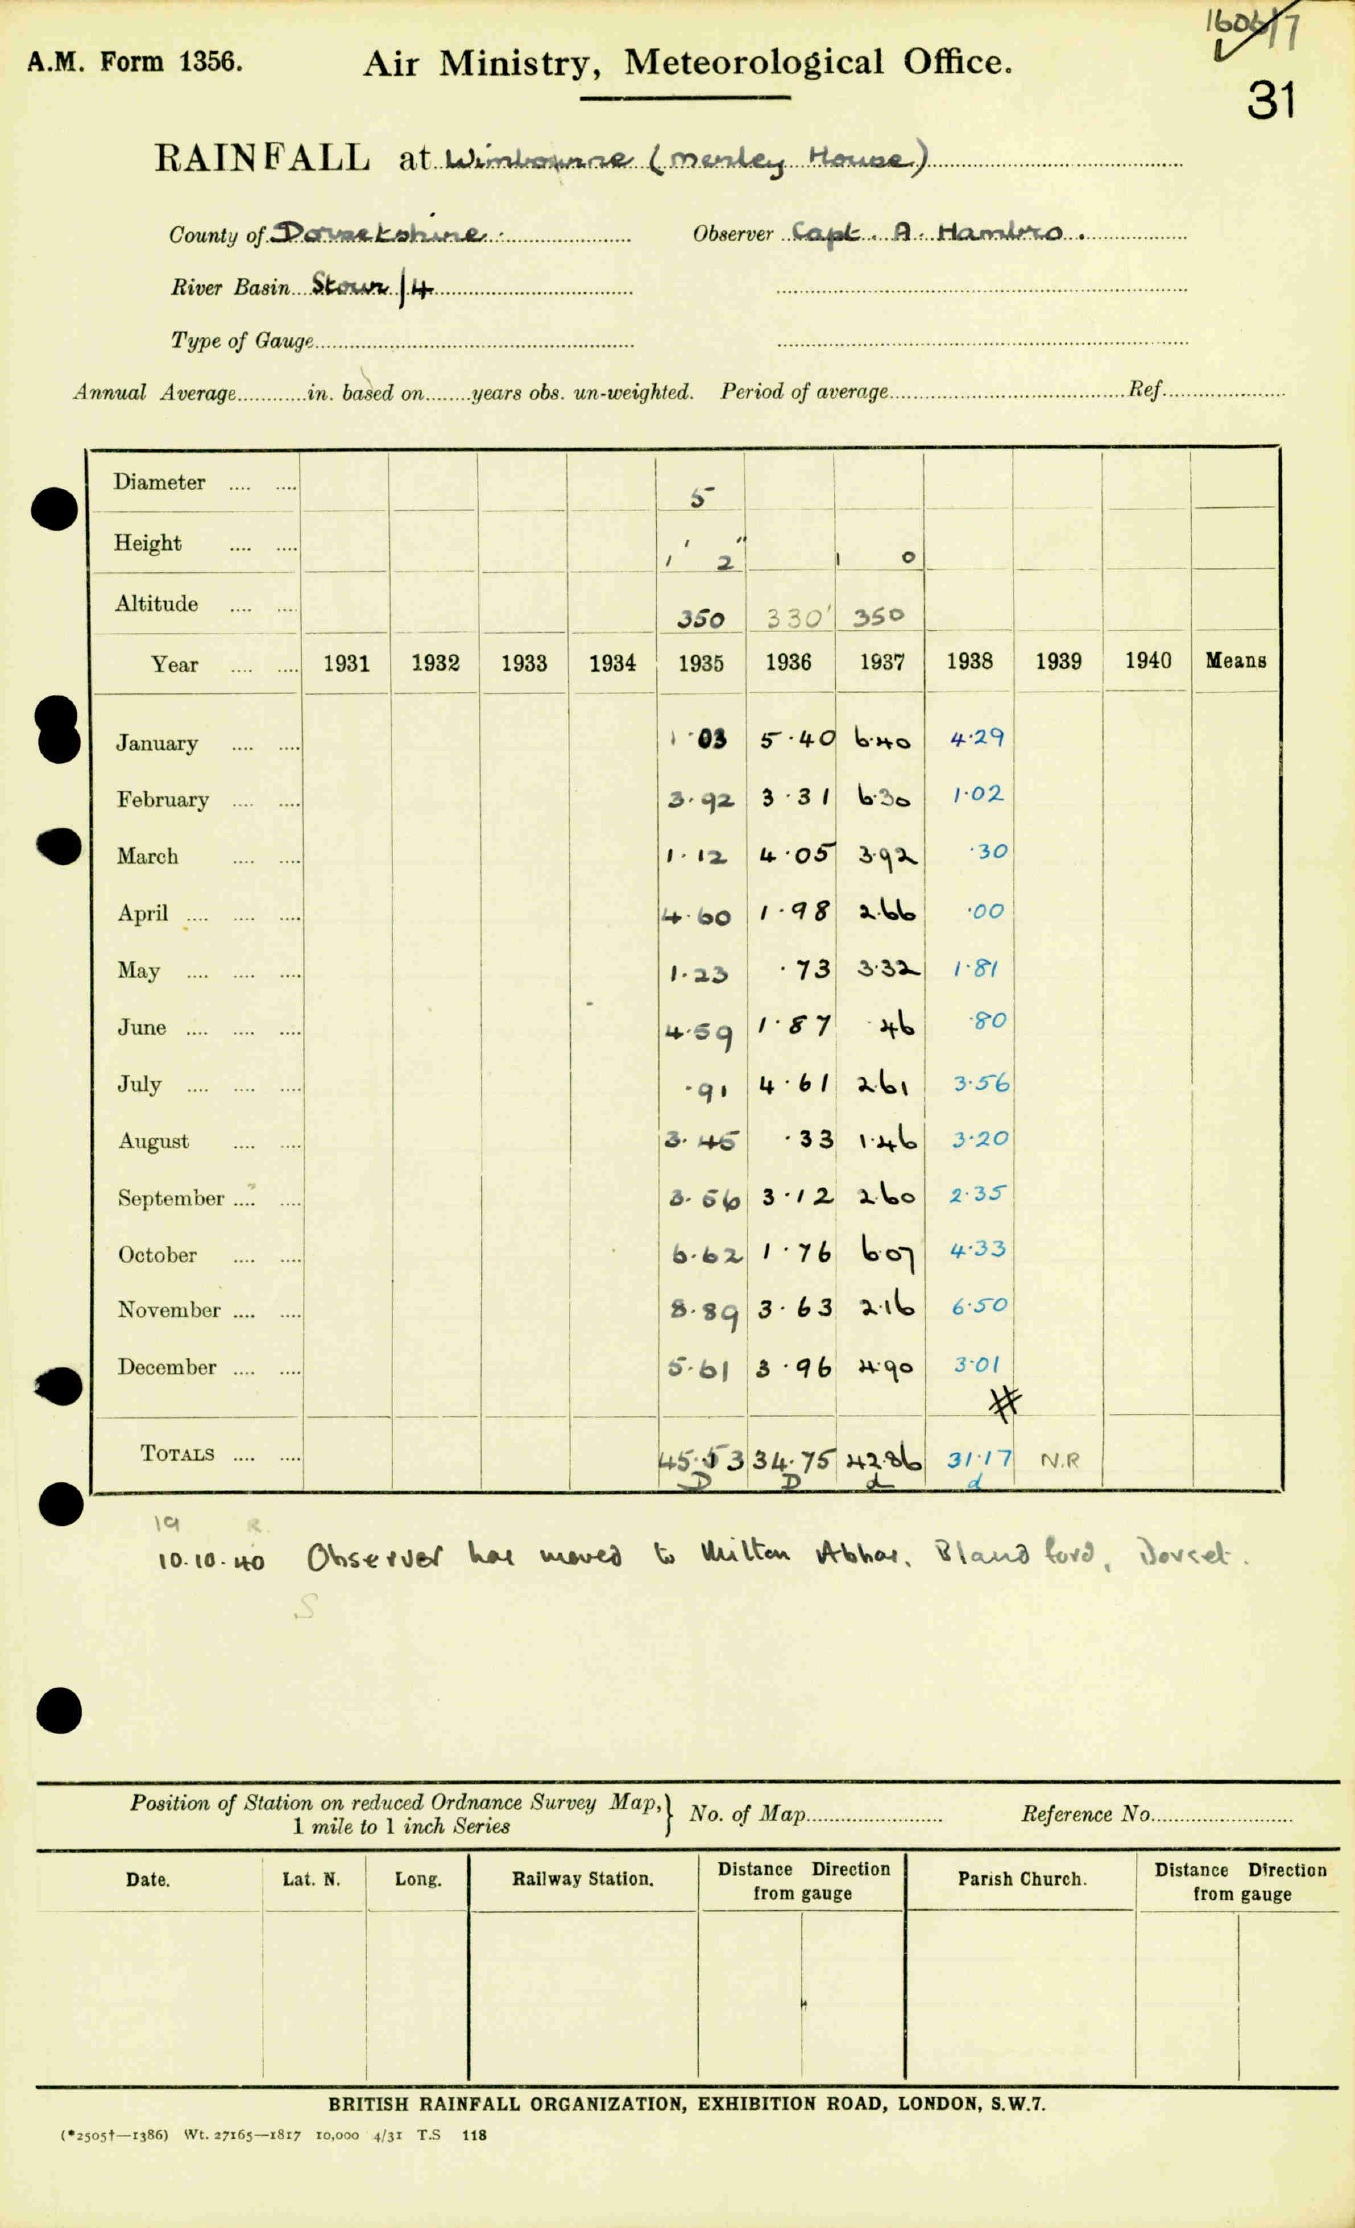 1606/7
A.M. Form 1356. Air Ministry, Meteorological Office.
31
RAINFALL at Wimbourne (Merley House)
County of Dorsetshire. Observer Capt. A. Hambro.
River Basin Stour/4
Type of Gauge
Annual Average in. based on years obs. un-weighted. Period of average Ref.
Diameter 5
Height 1' 2" 1 0
Altitude 350 330' 350
Year 1931 1932 1933 1934 1935 1936 1937 1938 1939 1940 Means
January 1·03 5·40 6·40 4·29
February 3·92 3·31 6·30 1·02
March 1·12 4·05 3·92 ·30
April 4·60 1·98 2·66 ·00
May 1·23 ·73 3·32 1·81
June 4·59 1·87 ·46 ·80
July ·91 4·61 2·61 3·56
August 3·45 ·33 1·46 3·20
September 3·56 3·12 2·60 2·35
October 6·62 1·76 6·07 4·33
November 8·89 3·63 2·16 6·50
December 5·61 3·96 4·90 3·01
#
TOTALS 45·53 34·75 42·86 31·17 N.R
D D d d
19 R.
10.10.40 Observer has moved to Milton Abbas, Blandford, Dorset.
S
Position of Station on reduced Ordnance Survey Map, } No. of Map Reference No.
1 mile to 1 inch Series
Date. Lat. N. Long. Railway Station. Distance Direction from gauge Parish Church. Distance Direction from gauge
BRITISH RAINFALL ORGANIZATION, EXHIBITION ROAD, LONDON, S.W.7.
(*2505†—1386) Wt. 27165—1817 10,000 4/31 T.S 118